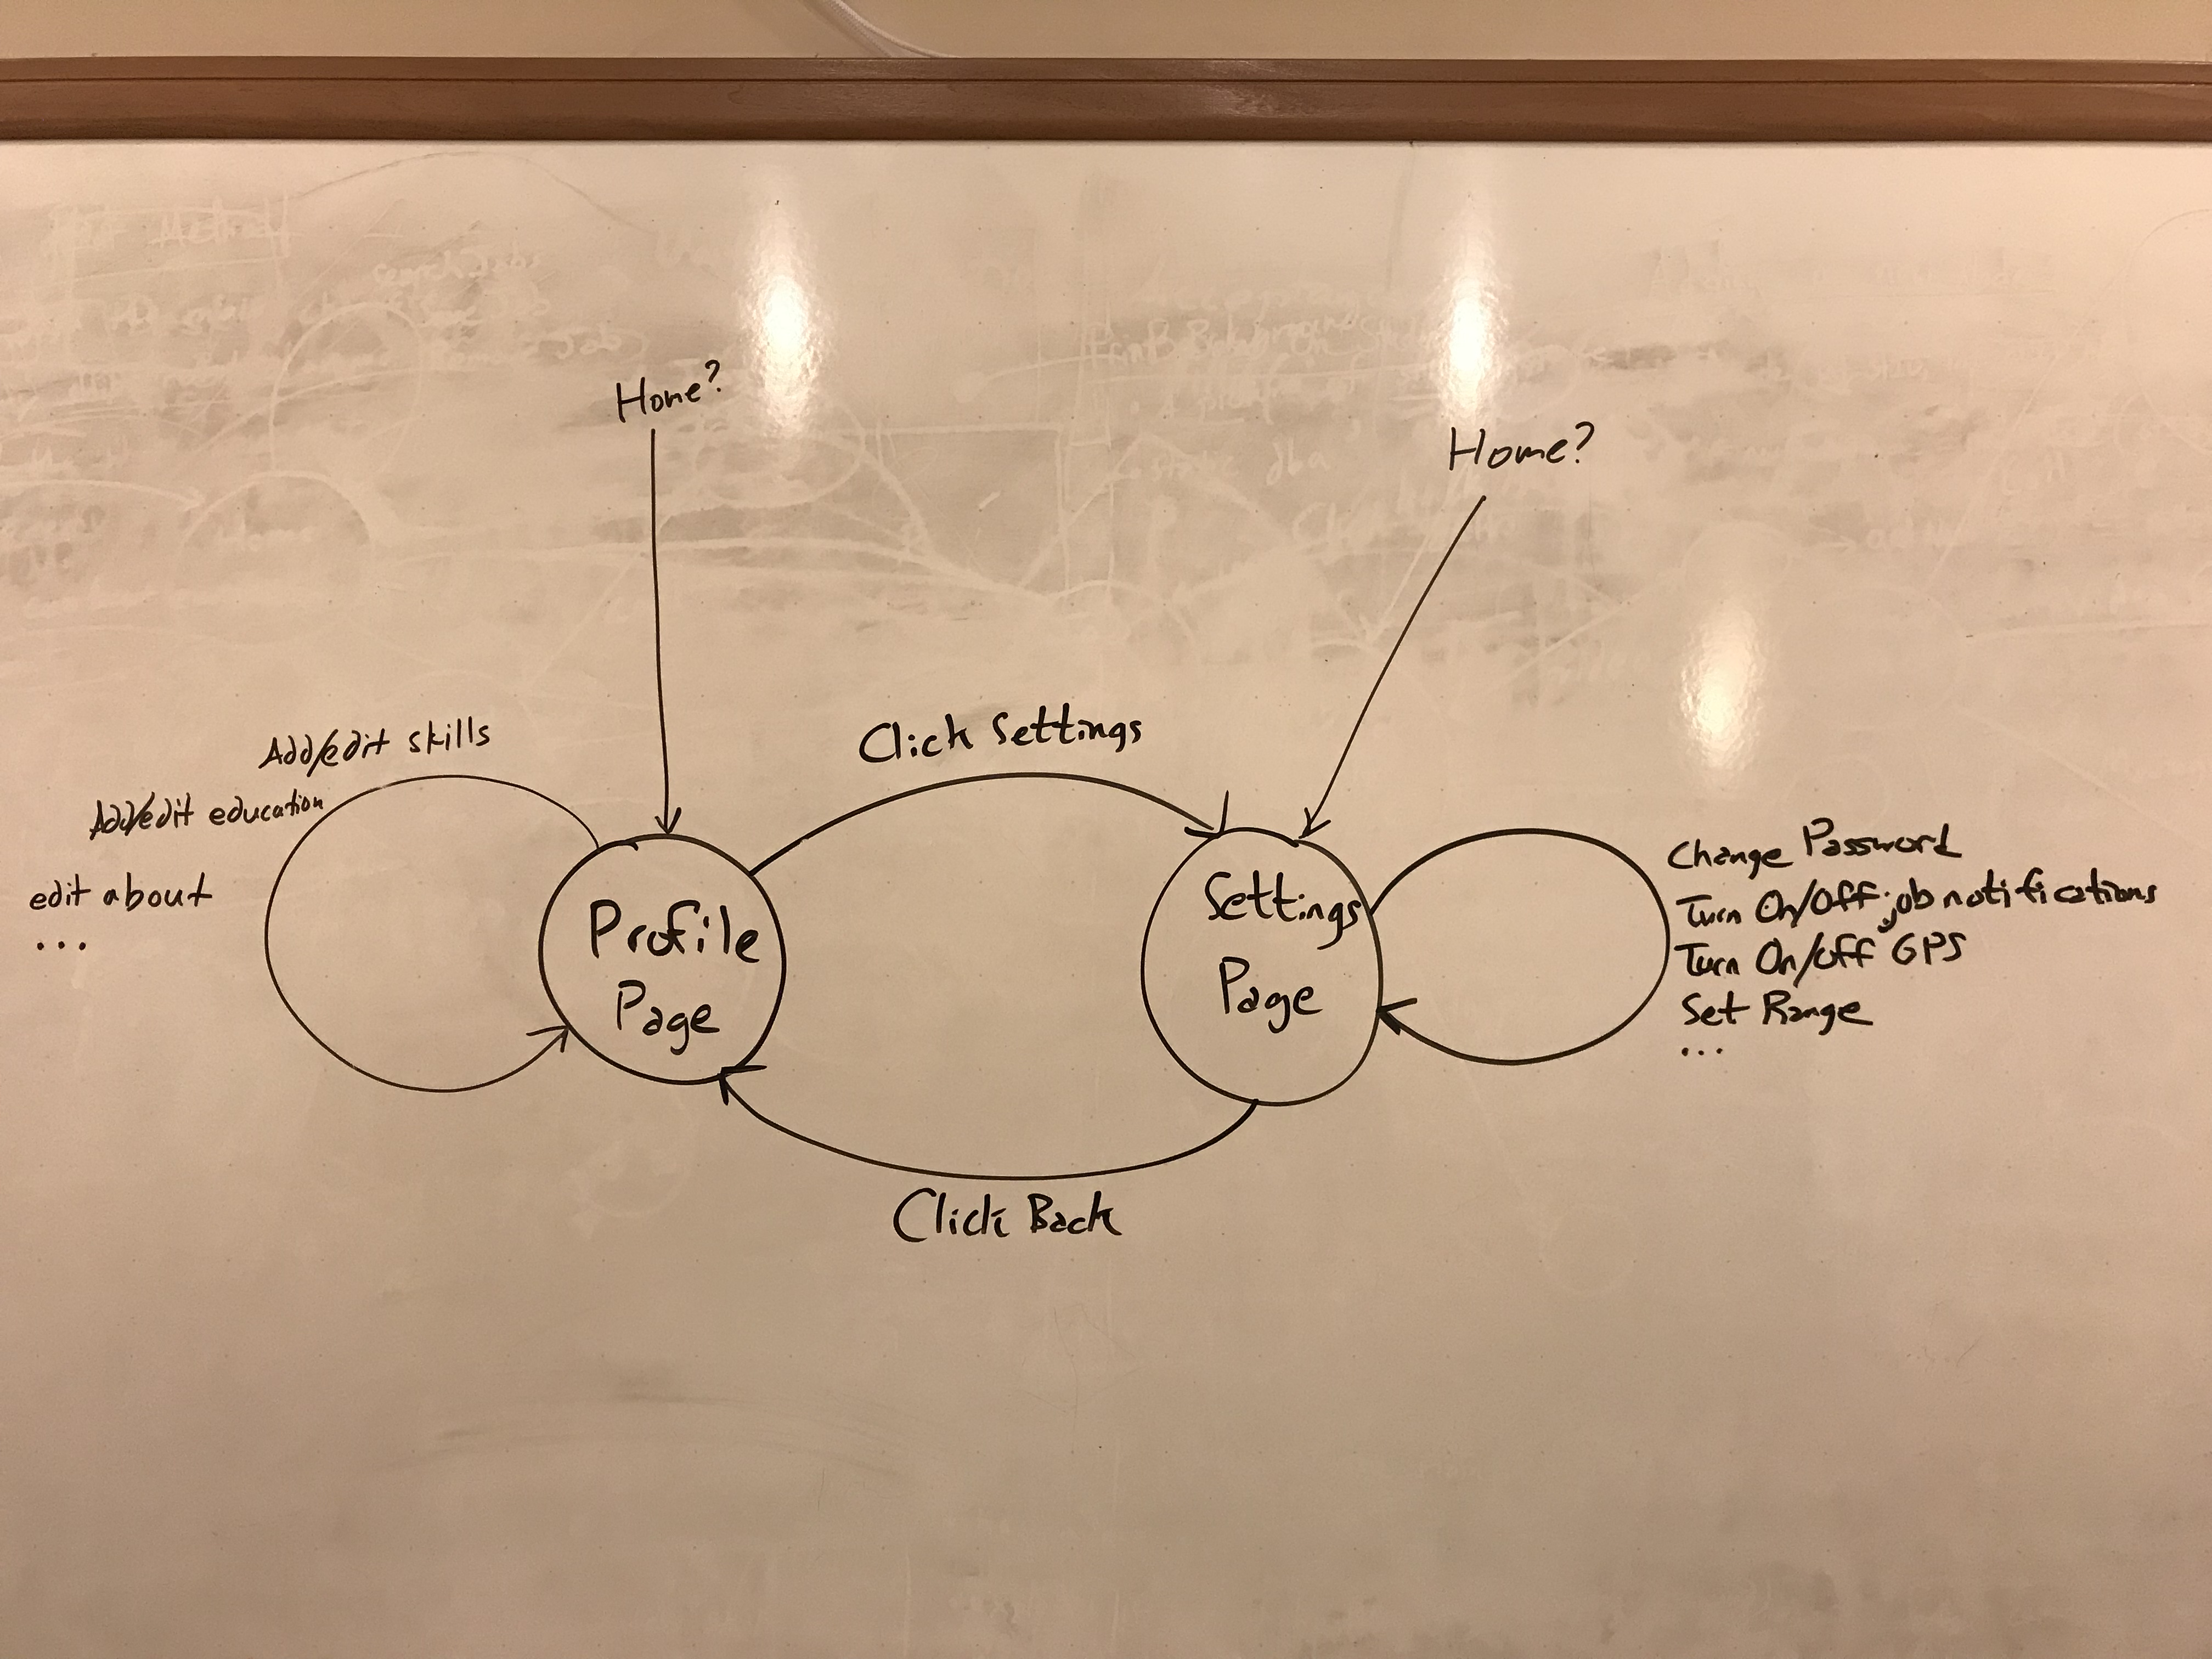 Home?
Home?
Click Settings
Add/edit skills
Add/edit education
edit about
...
Profile
Page
Settings
Page
Change Password
Turn On/Off job notifications
Turn On/Off GPS
Set Range
...
Click Back